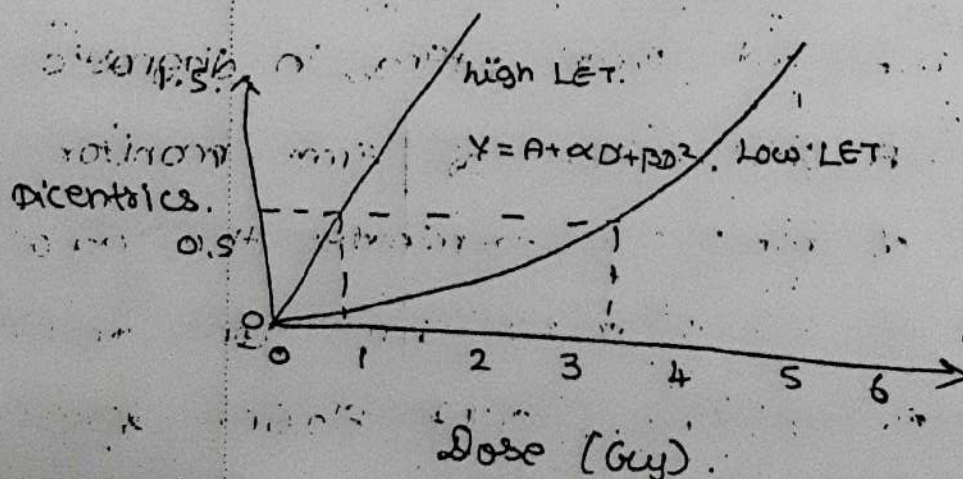 1.5.
high LET.
Y = A + αD + βD². Low LET.
Dicentrics.
0.5
0
0 1 2 3 4 5 6
Dose (Gy).